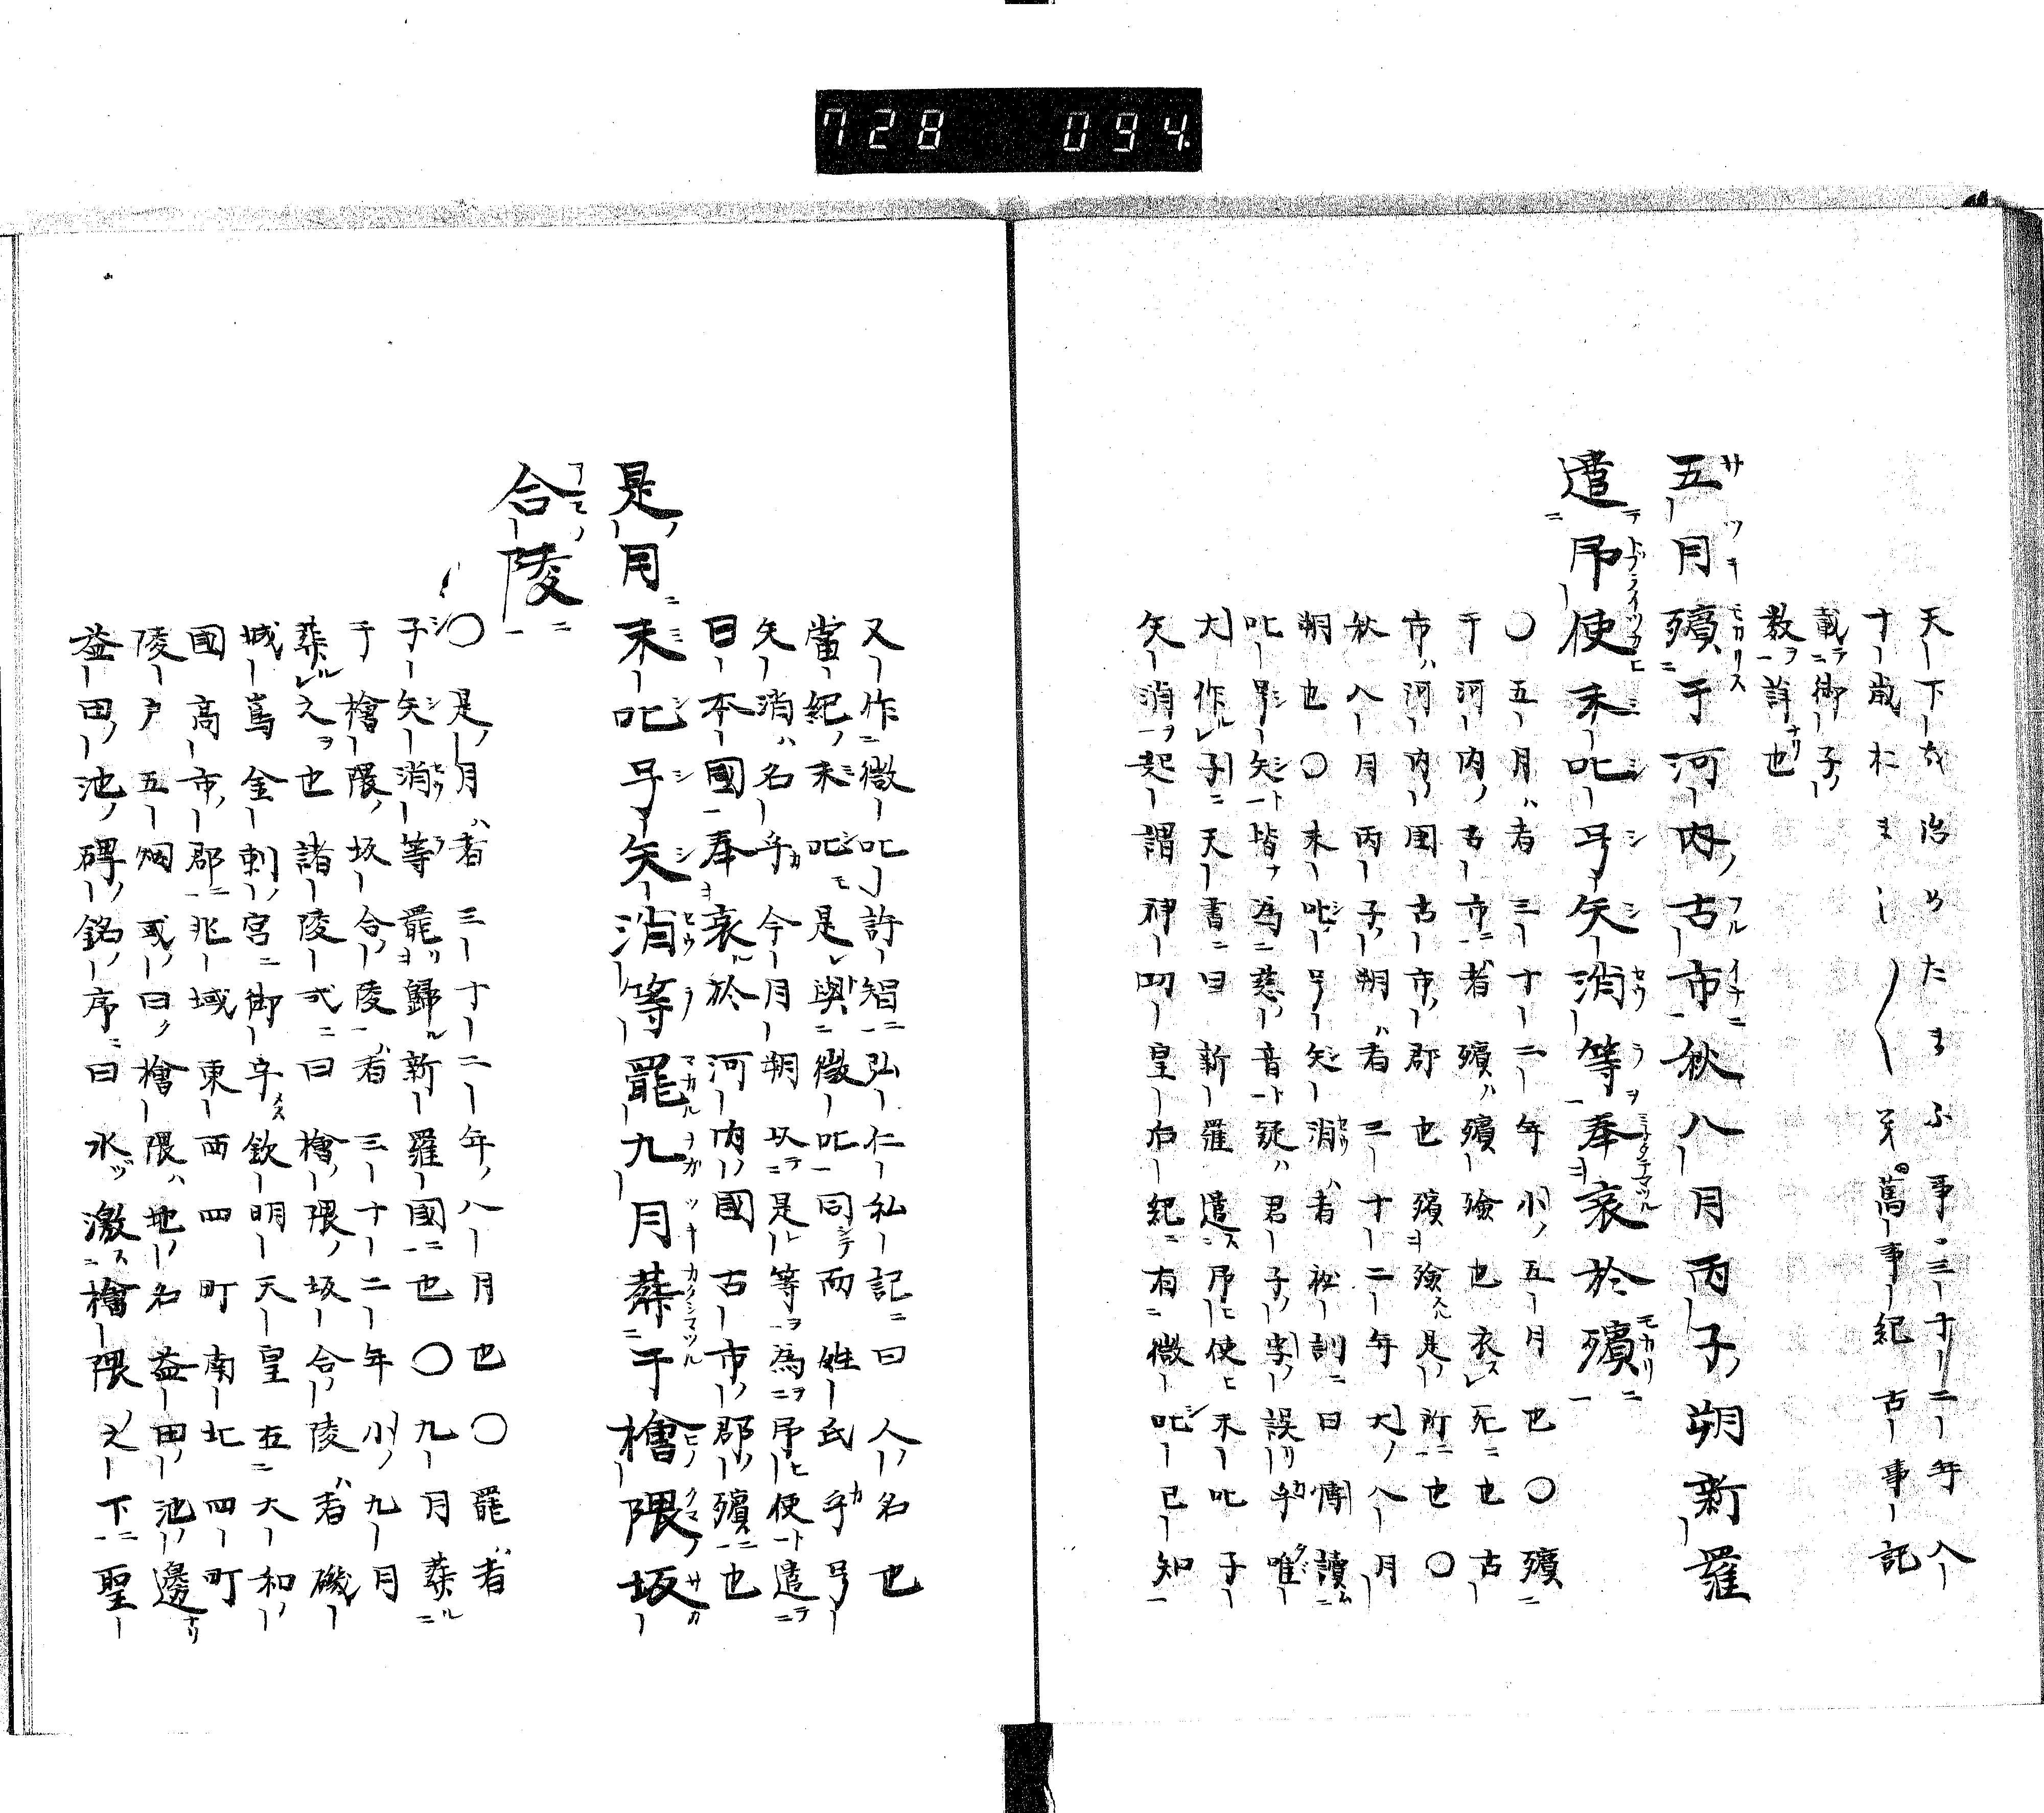 728 094
天下を治めたまふ事三十二年人
十歳にまし〱き旧事紀古事記
載御子
数詳也
五月殯于河内古市秋八月丙子朔新羅
遣弔使未叱子失消等奉哀於殯
〇五月者三十二年小五月也〇殯
于河内古市者殯殯殮也衣死也古
市河内国古市郡也殯殮是所也〇
秋八月丙子朔者三十二年大八月
朔也〇未叱号矢消者私訓曰博讀
叱号矢皆為慈音疑君子字誤乎唯
大作子天書曰新羅遣弔使未叱子
矢消起謂神功皇后紀有微叱已知
又作微叱許智弘仁私記曰人名也
當紀未叱是與微叱同而姓氏乎号
矢消名乎今月朔以是等為弔使遣
日本國奉哀於河内國古市郡殯也
是月未叱号矢消等罷九月葬于檜隈坂
合陵
〇是月者三十二年八月也〇罷者
子矢消等罷歸新羅國也〇九月葬
于檜隈坂合陵者三十二年小九月
葬之也諸陵式曰檜隈坂合陵者磯
城嶌金刺宮御宇欽明天皇在大和
國高市郡兆域東西四町南北四町
陵戸五烟或曰檜隈地名益田池邊
益田池碑銘序曰水激檜隈之下聖